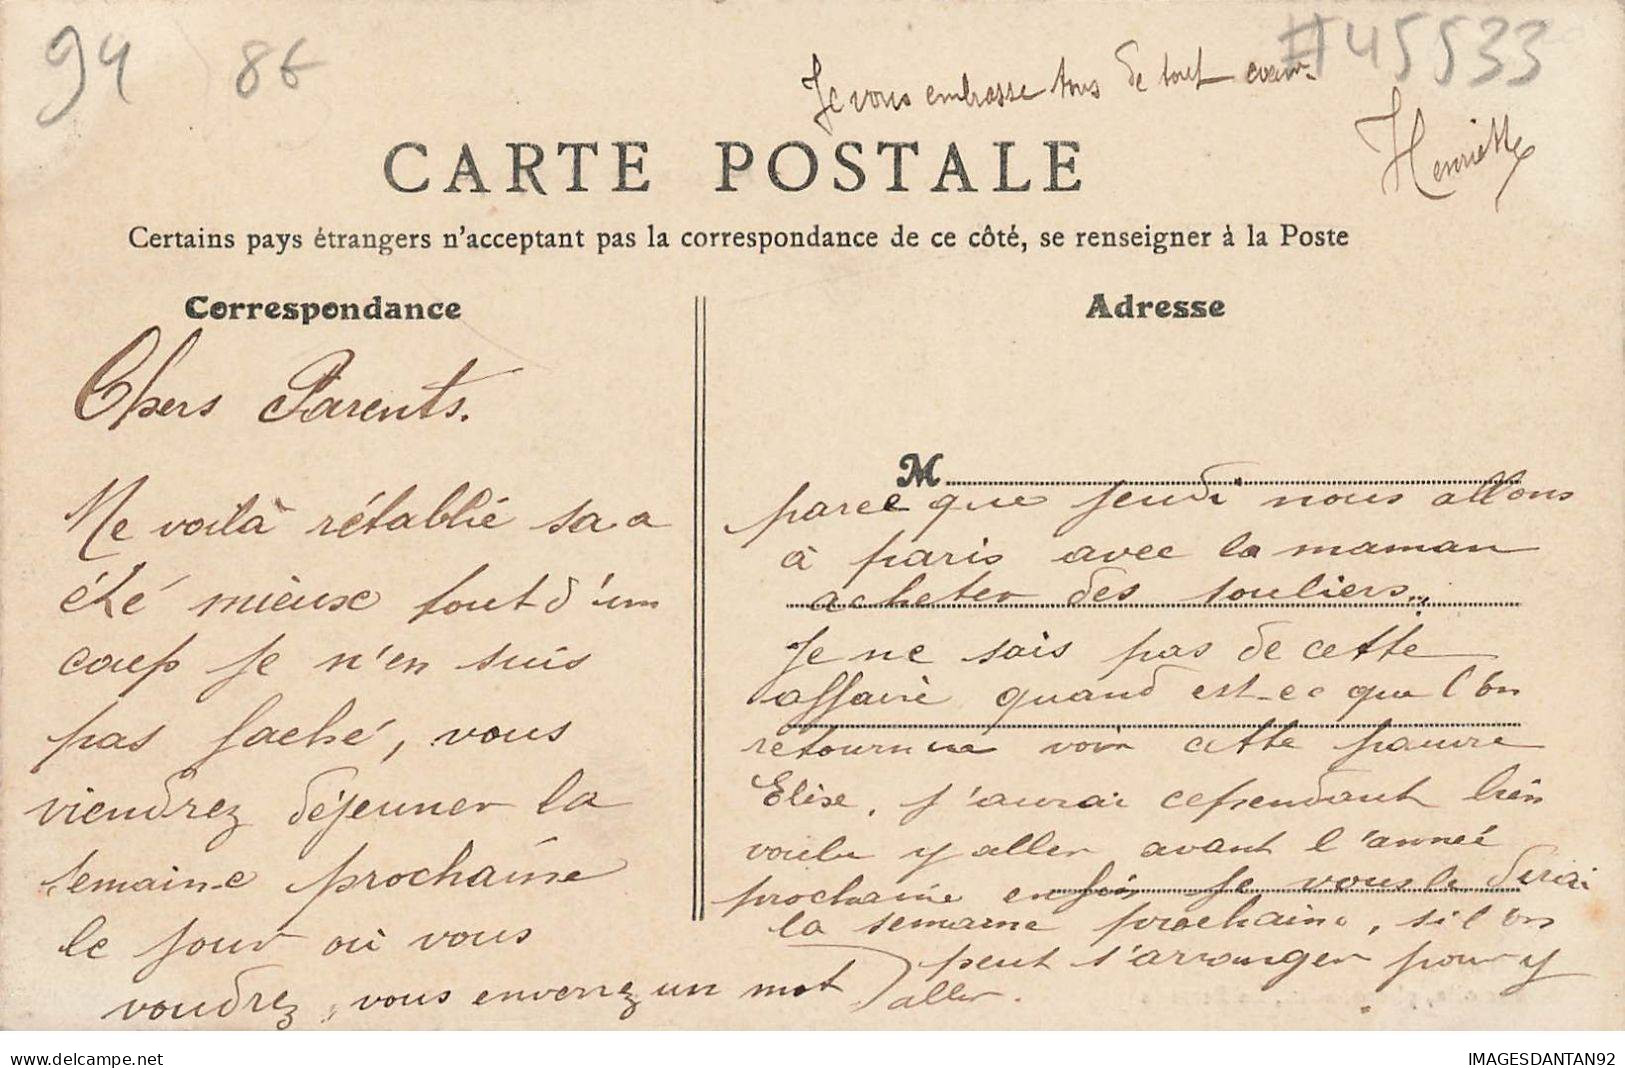 94 8€ #45533
Je vous embrasse tous de tout cœur.
Henriette
CARTE POSTALE
Certains pays étrangers n'acceptant pas la correspondance de ce côté, se renseigner à la Poste
Correspondance
Chers Parents.
Me voilà rétablie sa a
été mieux tout d'un
coup je n'en suis
pas faché, vous
viendrez déjeuner la
semaine prochaine
le jour où vous
voudrez, vous enverrez un mot
Adresse
M
parce que jeudi nous allons
à paris avec la maman
acheter des souliers..
Je ne sais pas de cette
affaire quand est-ce que l'on
retournne voir cette pauvre
Elise, j'aurai cependant bien
voulu y aller avant l'année
prochaine enfin je vous le dirai
la semaine prochaine, si l'on
peut s'arranger pour y
aller.
www.delcampe.net
IMAGESDANTAN92